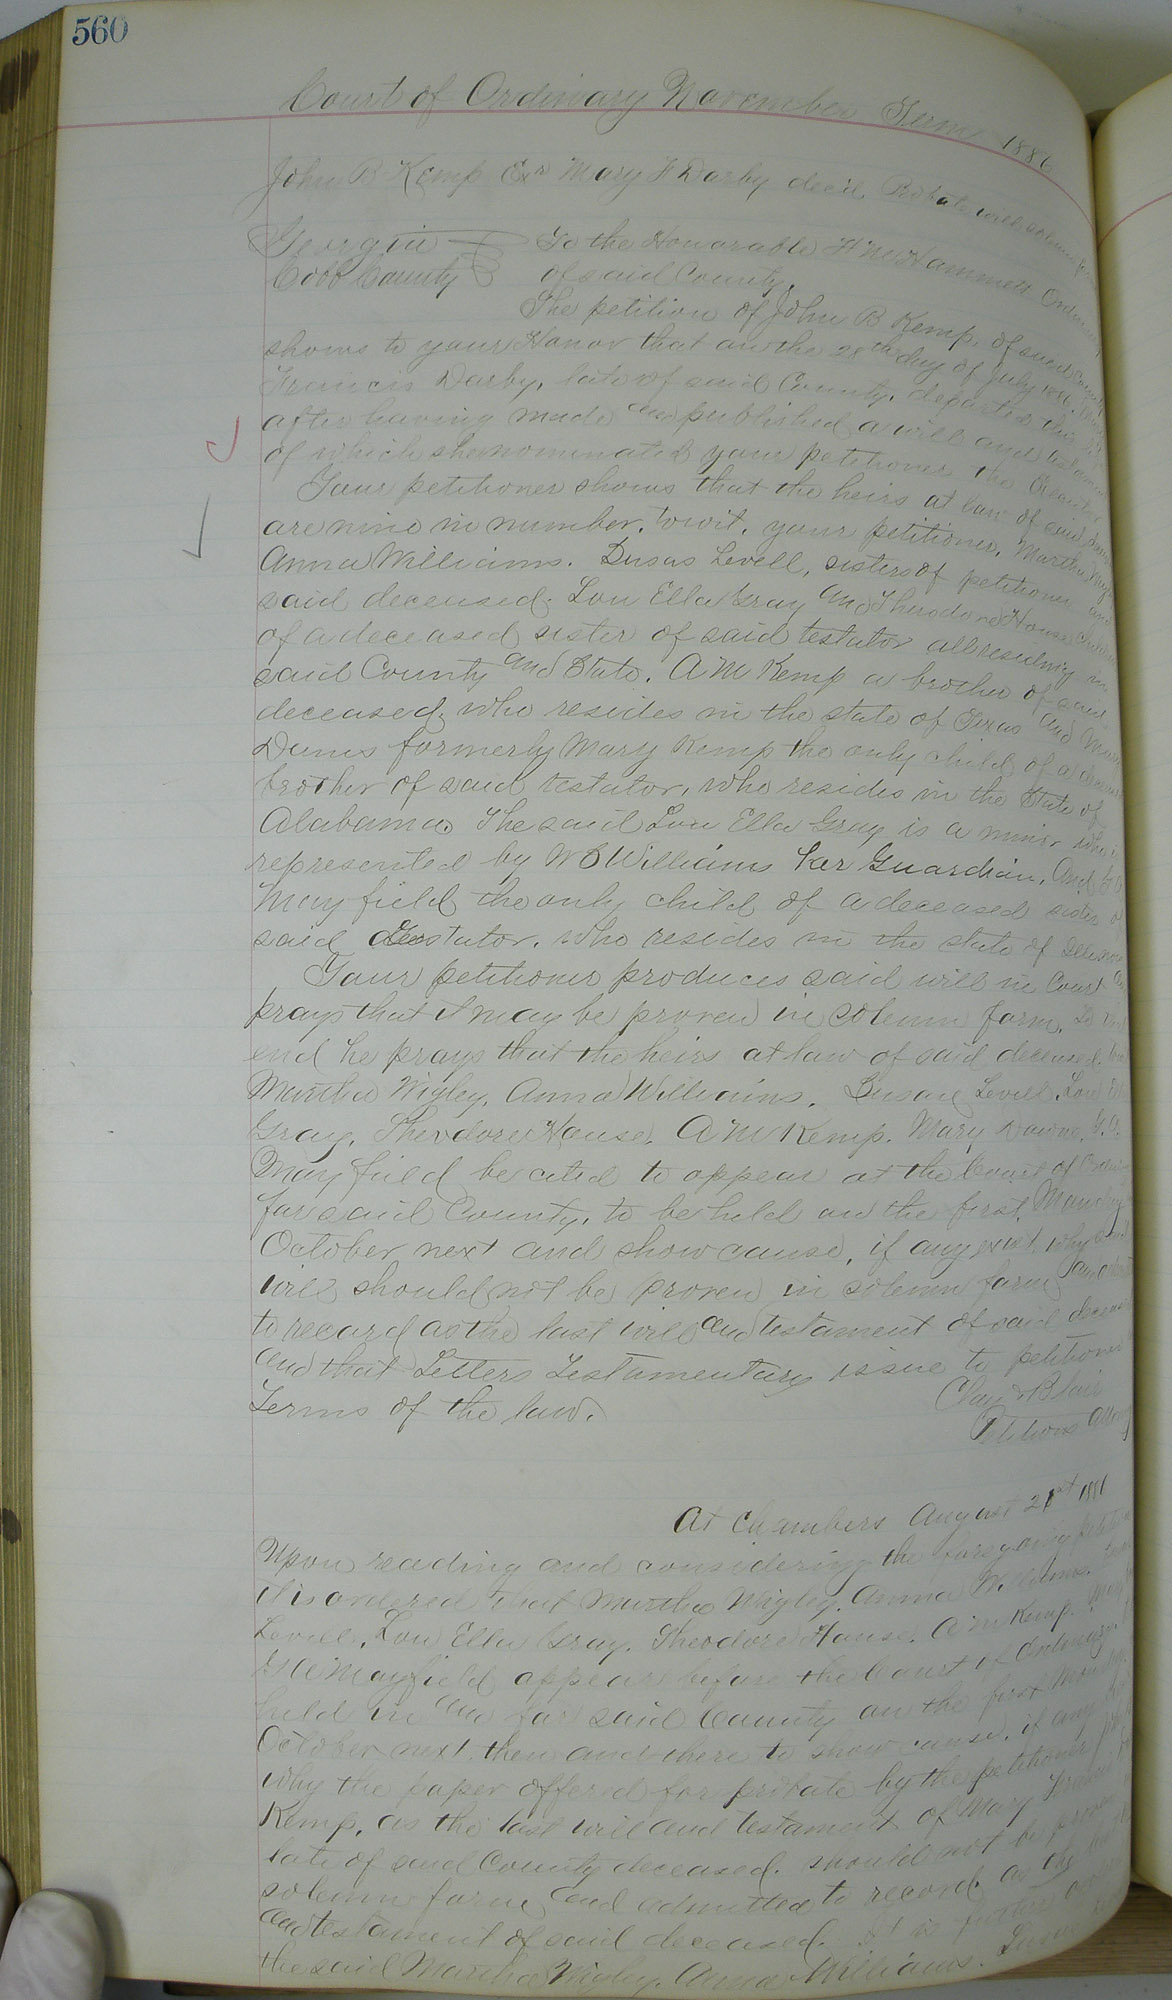 560
Court of Ordinary November Term 1886
John B Kemp Exr Mary F Darby dec'd. Probate will solemn form
Georgia To the Honorable H M Hammett Ordinary
Cobb County of said County.
The petition of John B Kemp, of said County
shows to your Honor that on the 28th day of July
Francis Darby, late of said County, departed this
after having made and published a will and testament
of which she nominated your petitioner the Executor
Your petitioner shows that the heirs at law of said
are nine in number, towit, your petitioner, Martha Wigley
Anna Williams. Susan Levell, sisters of petitioner and
said deceased. Lou Ella Gray and Theodore House children
of a deceased sister of said testator all residing in
said County and State. A M Kemp a brother of said
deceased, who resides in the state of Texas and Mary
formerly Mary Kemp the only child of a deceased
brother of said testator, who resides in the State of
Alabama. The said Lou Ella Gray is a minor who is
represented by W B Williams her Guardian, And
Mayfield the only child of a deceased sister of
said testator. who resides in the state of
Your petitioner produces said will in Court and
prays that it may be proven in solemn form, To this
end he prays that the heirs at law of said deceased,
Martha Wigley, Anna Williams. Susan Levell, Lou Ella
Gray, Theodore House, A M Kemp. Mary
Mayfield be cited to appear at the Court of Ordinary
for said County, to be held on the first Monday
October next and show cause, if any exist, why said
will should not be proven in solemn form and admitted
to record as the last will and testament of said deceased
and that Letters Testamentary issue to petitioner
Terms of the law.
Clay & Blair
Petitions Attorney
At Chambers August 21st
Upon reading and considering the foregoing petition
it is ordered that Martha Wigley. Anna Williams.
Levell, Lou Ella Gray. Theodore House. A M Kemp.
Mayfield appear before the Court of Ordinary
held in and for said County on the first Monday
October next. then and there to show cause, if any
why the paper offered for probate by the petitioner
Kemp, as the last will and testament of Mary Francis
late of said County deceased. should not be proven
solemn form and admitted to record as the last
and testament of said deceased. It is further
the said Martha Wigley. Anna Williams. Susan